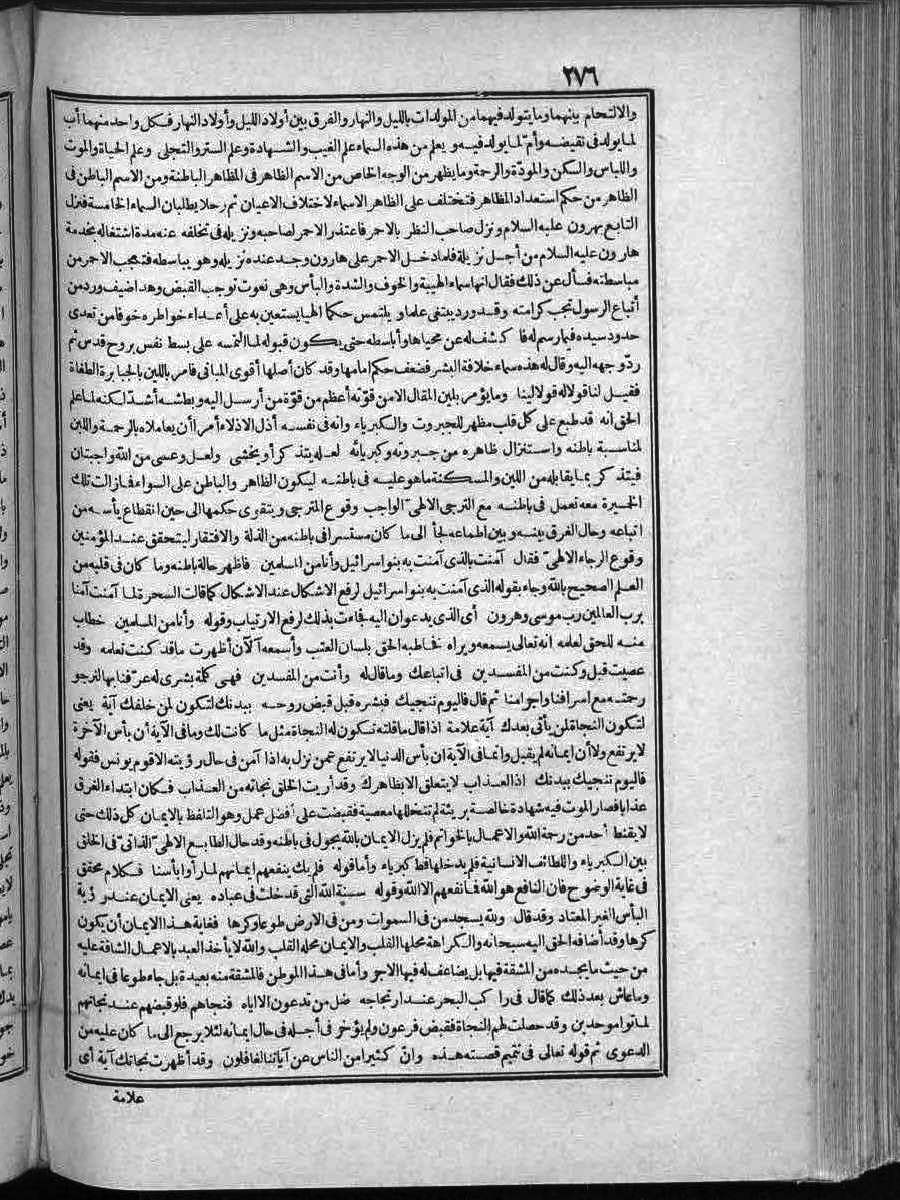 ٢٧٦
والالتحام بينهما وما يتولد فيهما من المولدات بالليل والنهار والفرق بين أولاد الليل وأولاد النهار فكل واحد منهما أب
لما يولد فى نقيضه وأم لما يولد فيه ويعلم من هذه السماء علم الغيب والشهادة وعلم الستر والتجلى وعلم الحياة والموت
واللباس والسكن والمودة والرحمة وما يظهر من الوجه الخاص من الاسم الظاهر فى المظاهر الباطنة ومن الاسم الباطن فى
الظاهر من حكم استعداد المظاهر فتختلف على الظاهر الاسماء لاختلاف الاعيان ثم رحلا يطلبان السماء الخامسة فنزل
التابع بهرون عليه السلام ونزل صاحب النظر بالاحمر فاعتذر الاحمر لصاحبه ونزيله فى تخلفه عنه مدة اشتغاله بخدمة
هارون عليه السلام من أجل نزيله فلما دخل الاحمر على هارون وجد عنده نزيله وهو يباسطه فتعجب الاحمر من
مباسطته فسأل عن ذلك فقال انها سماء الهيبة والخوف والشدة والبأس وهى نعوت توجب القبض وهذا ضيف ورد من
أتباع الرسول تجب كرامته وقد ورد يبتغى علما ويلتمس حكما الهيا يستعين به على أعداء خواطره خوفا من تعدى
حدود سيده فيما رسم له فا كشف له عن محياها وأباسطه حتى يكون قبوله لما التمسه على بسط نفس بروح قدس ثم
ردّ وجهه اليه وقال له هذه سماء خلافة البشر فضعف حكم امامها وقد كان أصلها أقوى المبانى فامر باللين بالجبابرة الطغاة
فقيل لنا قولا له قولا لينا وما يؤمر بلين المقال الا من قوته أعظم من قوة من أرسل اليه وبطشه أشد لكنه لما علم
الحق انه قد طبع على كل قلب مظهر للجبروت والكبرياء وانه فى نفسه أذل الاذلاء أمرا أن يعاملاه بالرحمة واللين
لمناسبة باطنه واستنزال ظاهره من جبروته وكبريائه لعله يتذكر أو يخشى ولعل وعسى من الله واجبتان
فيتذكر بما يقابله من اللين والمسكنة ما هو عليه فى باطنه ليكون الظاهر والباطن على السواء فما زالت تلك
الخميرة معه تعمل فى باطنه مع الترجى الالهى الواجب وقوع المترجى ويتقوى حكمها الى حين انقطاع يأسه من
اتباعه وحال الغرق بينه وبين اطماعه لجأ الى ما كان مستسرا فى باطنه من الذلة والافتقار ليتحقق عند المؤمنين
وقوع الرجاء الالهى فقال آمنت بالذى آمنت به بنو اسرائيل وأنا من المسلمين فاظهر حالة باطنه وما كان فى قلبه من
العلم الصحيح بالله وجاء بقوله الذى آمنت به بنو اسرائيل لرفع الاشكال عند الاشكال كما قالت السحرة لما آمنت آمنا
برب العالمين رب موسى وهرون أى الذى يدعوان اليه فجاءت بذلك لرفع الارتياب وقوله وأنا من المسلمين خطاب
منه للحق لعلمه انه تعالى يسمعه ويراه فخاطبه الحق بلسان العتب وأسمعه آلآن أظهرت ما قد كنت تعلمه وقد
عصيت قبل وكنت من المفسدين فى اتباعك وما قال له وأنت من المفسدين فهى كلمة بشرى له عرّفنا بها لنرجو
رحمته مع اسرافنا واجرامنا ثم قال فاليوم ننجيك فبشره قبل قبض روحه ببدنك لتكون لمن خلفك آية يعنى
لتكون النجاة لمن يأتى بعدك آية علامة اذا قال ما قلته تكون له النجاة مثل ما كانت لك وما فى الآية أن بأس الآخرة
لا يرتفع ولا أن ايمانه لم يقبل وانما فى الآية ان بأس الدنيا لا يرتفع عمن نزل به اذا آمن فى حال رؤيته الا قوم يونس فقوله
فاليوم ننجيك ببدنك اذ العذاب لا يتعلق الا بظاهرك وقد أريت الخلق نجاته من العذاب فكان ابتداء الغرق
عذابا فصار الموت فيه شهادة خالصة بريئة لم تتخللها معصية فقبضت على أفضل عمل وهو التلفظ بالايمان كل ذلك حتى
لا يقنط أحد من رحمة الله والاعمال بالخواتم فلم يزل الايمان بالله يجول فى باطنه وقد حال الطابع الالهى الذاتى فى الخلق
بين الكبرياء واللطائف الانسانية فلم يدخلها قط كبرياء وأما قوله فلم يك ينفعهم ايمانهم لما رأوا بأسنا فكلام محقق
فى غاية الوضوح فان النافع هو الله فما نفعهم الا الله وقوله سنة الله التى قد خلت فى عباده يعنى الايمان عند رؤية
البأس الغير المعتاد وقد قال ولله يسجد من فى السموات ومن فى الارض طوعا وكرها فغاية هذا الايمان أن يكون
كرها وقد أضافه الحق اليه سبحانه والكراهة محلها القلب والايمان محله القلب والله لا يأخذ العبد بالاعمال الشاقة عليه
من حيث ما يجده من المشقة فيها بل يضاعف له فيها الاجر وأما فى هذا الموطن فالمشقة منه بعيدة بل جاء طوعا فى ايمانه
وما عاش بعد ذلك كما قال فى راكب البحر عند ارتجاجه ضل من تدعون الا اياه فنجاهم فلو قبضهم عند نجاتهم
لماتوا موحدين وقد حصلت لهم النجاة فقبض فرعون ولم يؤخر فى أجله فى حال ايمانه لئلا يرجع الى ما كان عليه من
الدعوى ثم قوله تعالى فى تتميم قصته هذه وان كثيرا من الناس عن آياتنا لغافلون وقد أظهرت نجاتك آية أى
علامة